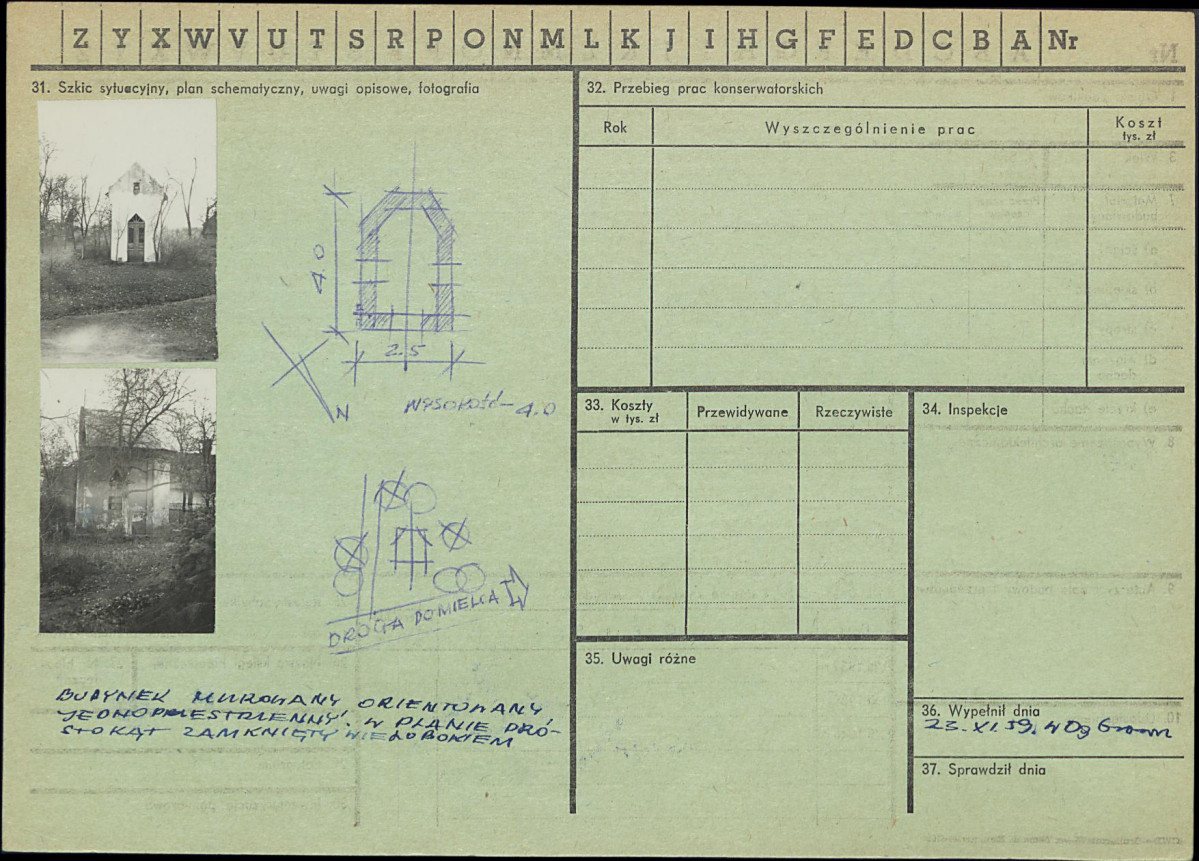 Z Y X W V U T S R P O N M L K J I H G F E D C B A Nr
31. Szkic sytuacyjny, plan schematyczny, uwagi opisowe, fotografia
4.0
2.5
N
WYSOKOŚĆ - 4.0
DROGA DO MIELCA
BUDYNEK MUROWANY ORIENTOWANY
JEDNOPRZESTRZENNY. W PLANIE PRO-
STOKĄT ZAMKNIĘTY WIELOBOKIEM
32. Przebieg prac konserwatorskich
Rok
Wyszczególnienie prac
Koszt
tys. zł
33. Koszty
w tys. zł
Przewidywane
Rzeczywiste
34. Inspekcje
35. Uwagi różne
36. Wypełnił dnia
23. XI. 59.
37. Sprawdził dnia